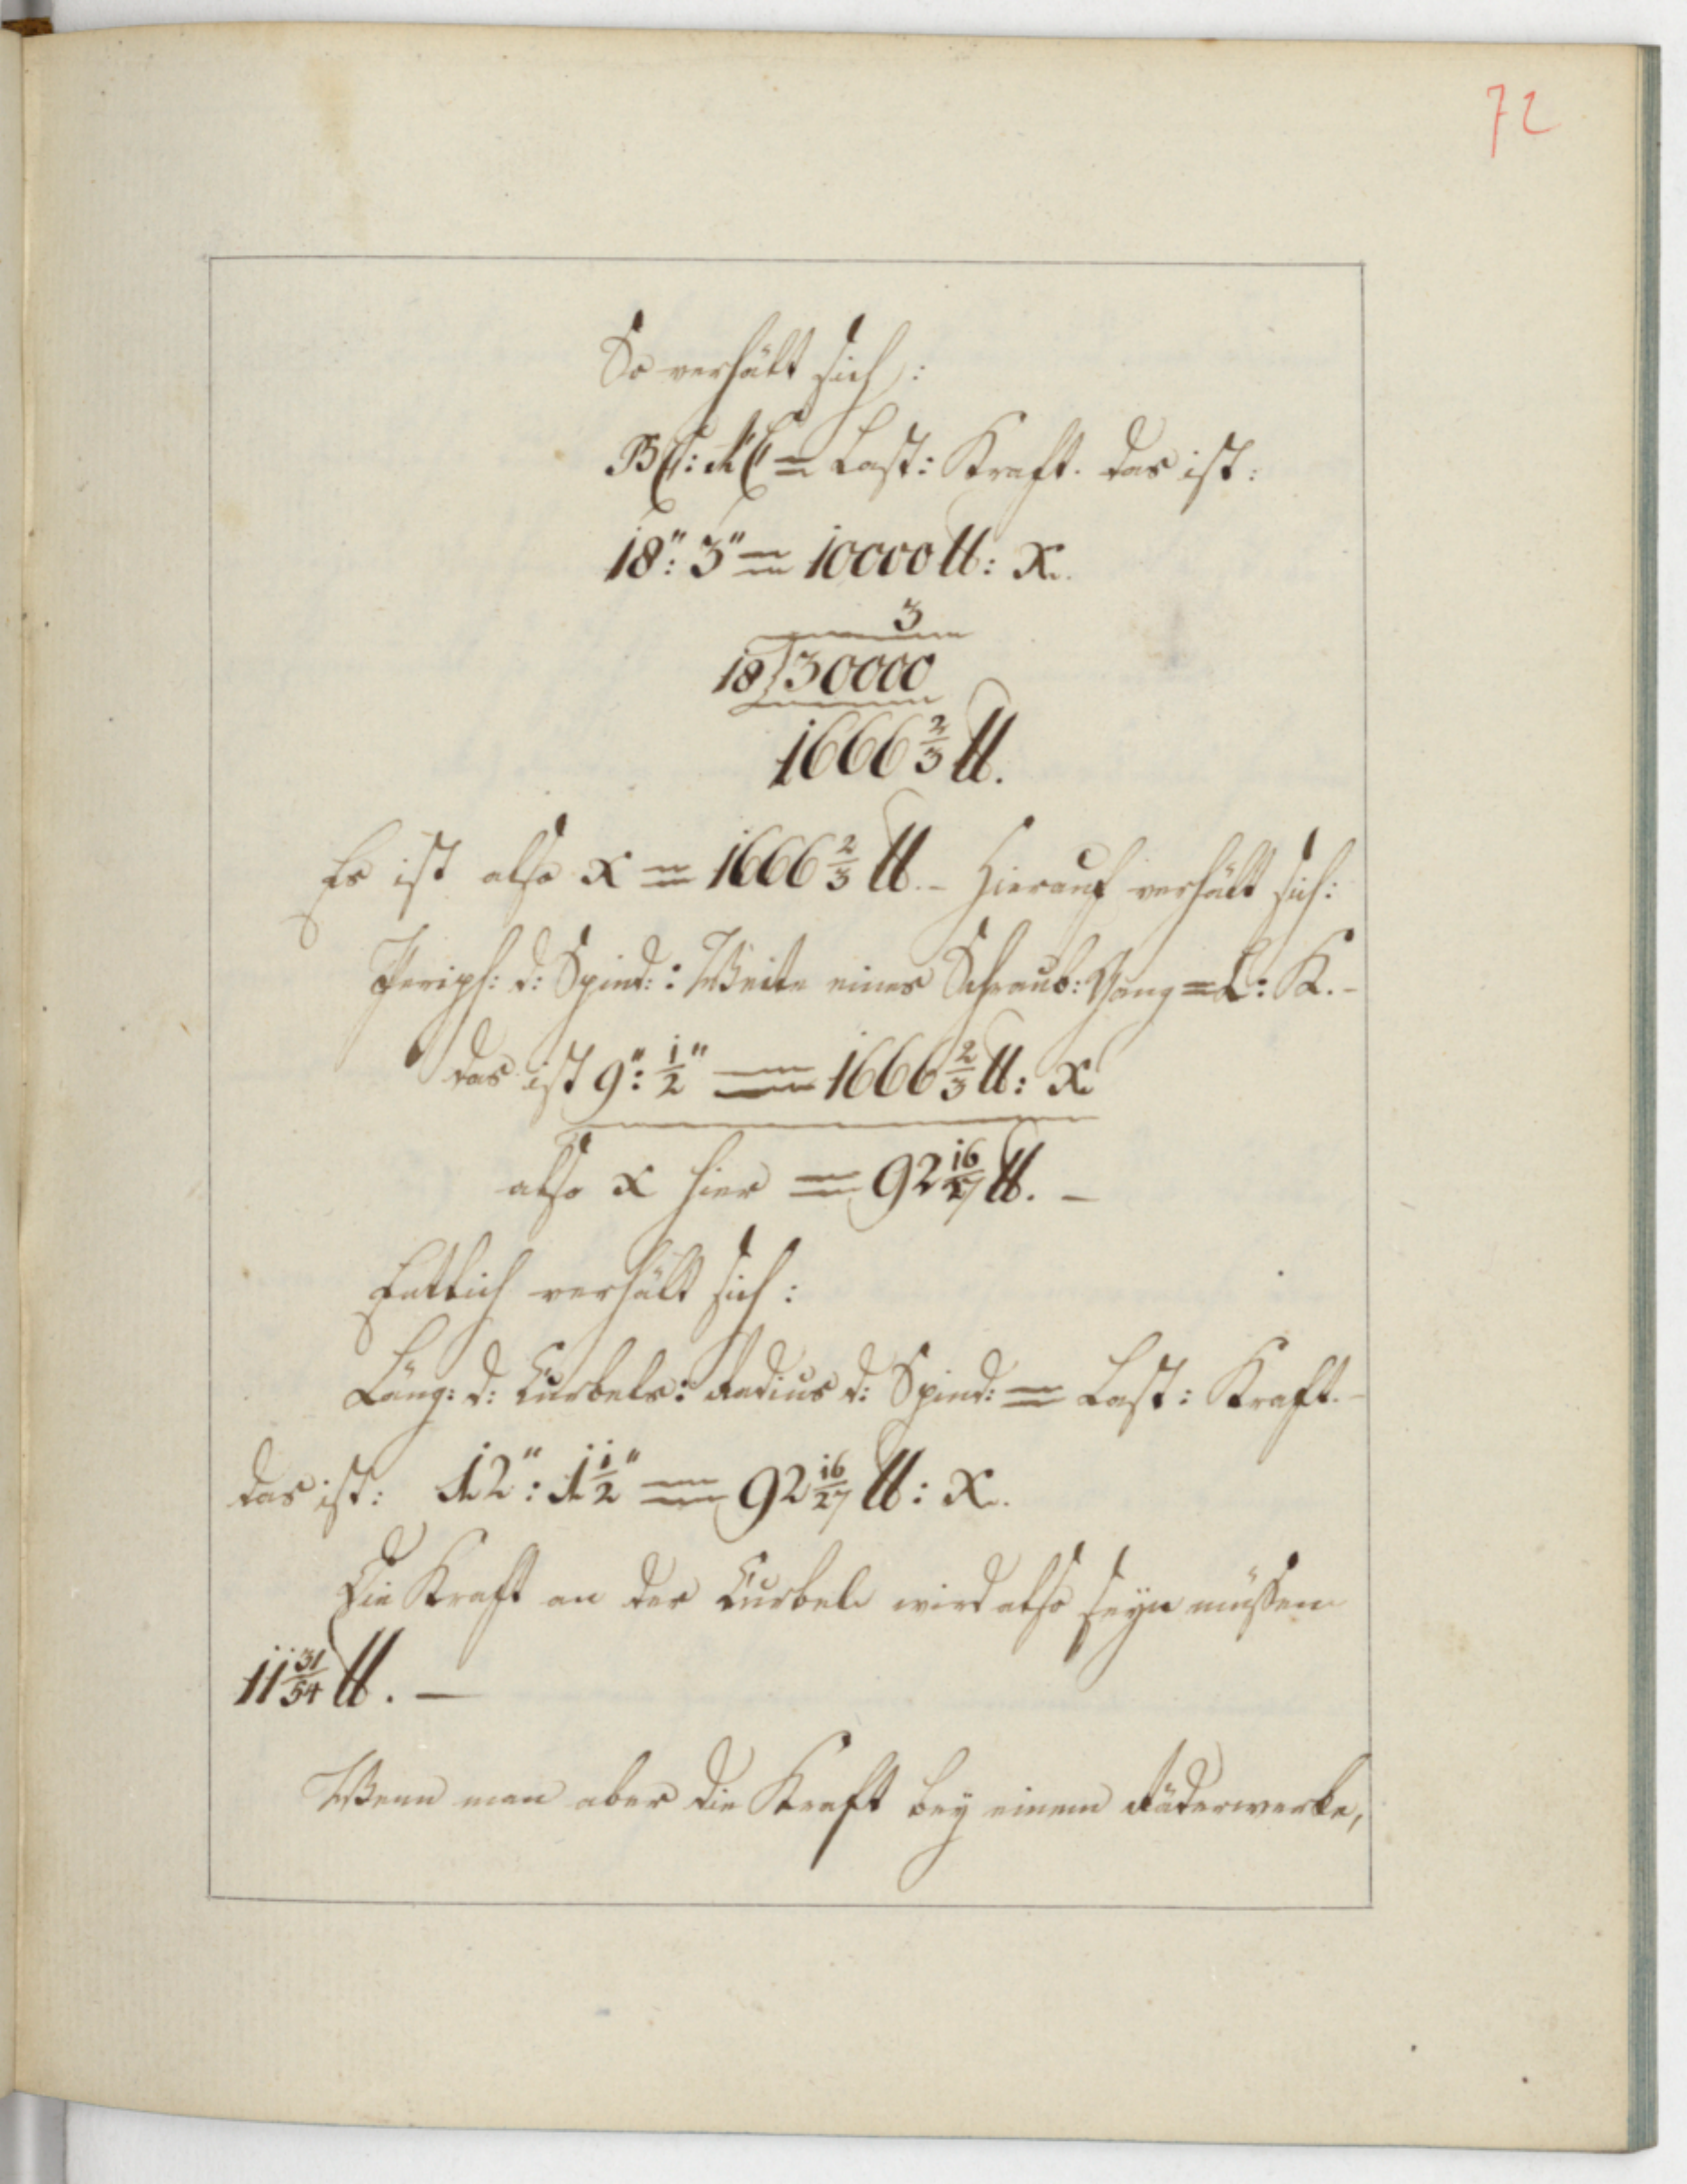 72
So verhält sich:
BC: AC = Last: Kraft. das ist:
18": 3" = 10000 ℔: x.
3
18/30000
1666 2/3 ℔.
Es ist also x = 1666 2/3 ℔. – Hierauf verhält sich:
Periph: d: Spind: : Weite eines Schraub: Gang = L: K. –
das ist 9": 1/2" = 1666 2/3 ℔: x
also x hier = 92 16/27 ℔. –
Entlich verhält sich:
Läng: d: Curbels: Radius d: Spind: = Last: Kraft. –
das ist: 12": 1 1/2" = 92 16/27 ℔: x.
Die Kraft an der Curbel wird also seyn müssen
11 31/54 ℔. –
Wenn man aber die Kraft bey einem Räderwerke,